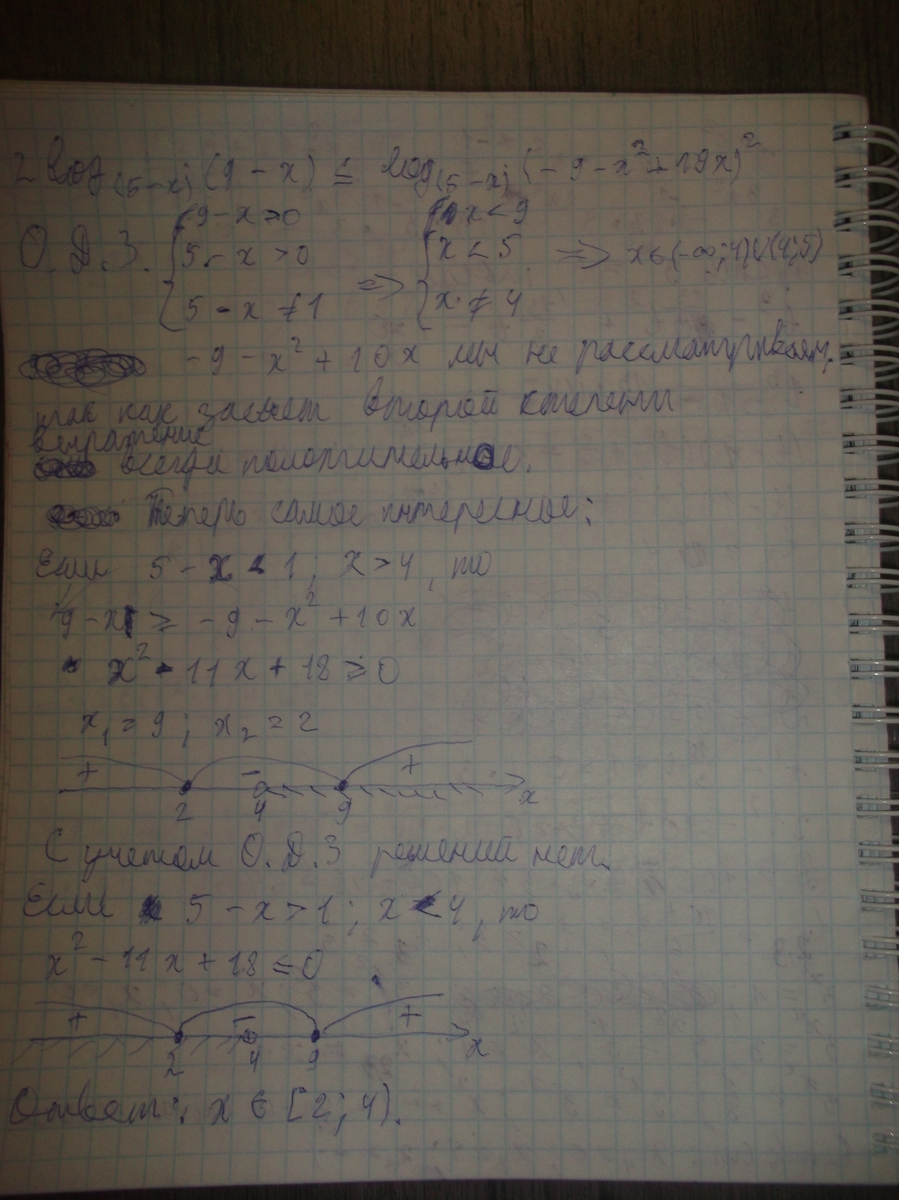 2 log₍₅₋ₓ₎ (9 - x) ≤ log₍₅₋ₓ₎ (- 9 - x² + 10x)²
О.Д.З. { 9 - x > 0 { x < 9
5 - x > 0 => { x < 5 => x ∈ (-∞; 4)∪(4; 5)
5 - x ≠ 1 x ≠ 4
- 9 - x² + 10x мы не рассматриваем,
так как за счет второй степени
выражение
всегда положительное.
Теперь самое интересное:
Если 5 - x < 1; x > 4, то
9 - x ≥ - 9 - x² + 10x
x² - 11x + 18 ≥ 0
x₁ = 9; x₂ = 2
+ - +
2 4 9 x
С учетом О.Д.З решений нет.
Если 5 - x > 1; x < 4, то
x² - 11x + 18 ≤ 0
+ - +
2 4 9 x
Ответ: x ∈ [2; 4).